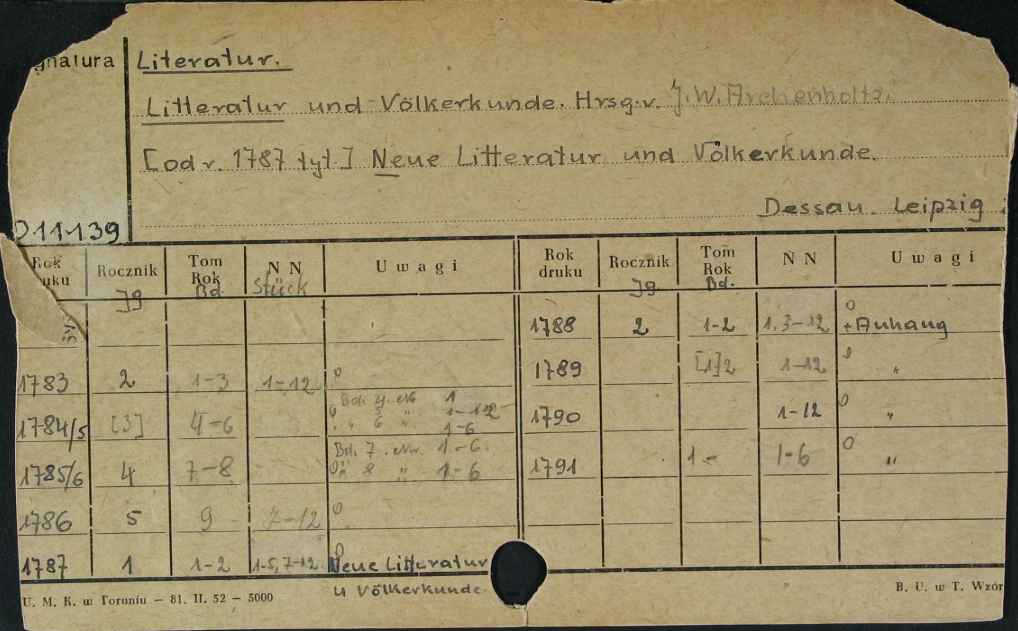 gnatura
Literatur.
Litteratur und Völkerkunde. Hrsg. v. J. W. Archenholtz.
[od r. 1787 tyt.] Neue Litteratur und Völkerkunde.
Dessau. Leipzig.
D11139
Rok druku Rocznik Jg Tom Rok Bd. N N Stück Uwagi Rok druku Rocznik Jg. Tom Rok Bd. N N Uwagi
1788 2 1-2 1.3-12 0 + Anhang
1783 2 1-3 1-12 0 1789 [1]2 1-12 0 "
1784/5 [3] 4-6 1790 1-12 0 "
1785/6 4 7-8 Bd. 7. Nr. 1-6. 0 8 " 1-6 1791 1- 1-6 0 "
1786 5 9 7-12 0
1787 1 1-2 1-5, 7-12 0 Neue Litteratur
u Völkerkunde.
U. M. K. w Toruniu — 81. II. 52 — 5000 B. U. w T. Wzór